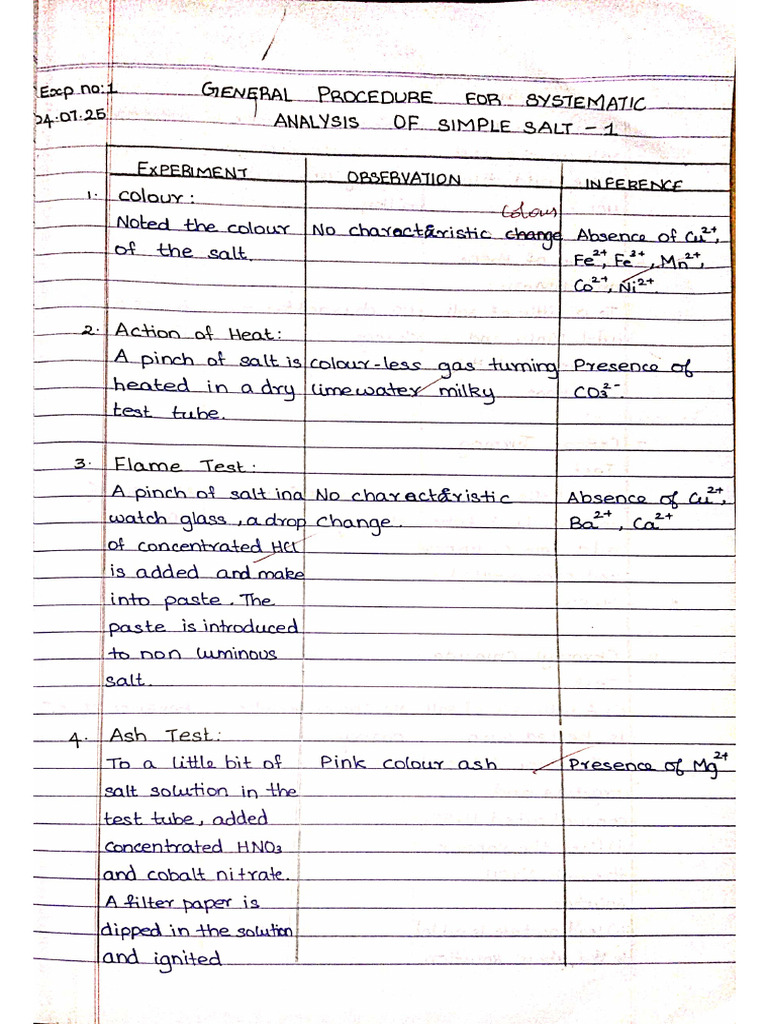 Exp no:1
04.07.25
GENERAL PROCEDURE FOR SYSTEMATIC
ANALYSIS OF SIMPLE SALT - 1
EXPERIMENT OBSERVATION INFERENCE
1. Colour:
colour
Noted the colour No characteristic change Absence of Cu²⁺,
of the salt. Fe²⁺, Fe³⁺, Mn²⁺,
Co²⁺, Ni²⁺.
2. Action of Heat:
A pinch of salt is colour-less gas turning Presence of
heated in a dry limewater milky CO₃²⁻.
test tube.
3. Flame Test:
A pinch of salt in a No characteristic Absence of Cu²⁺,
watch glass, a drop change. Ba²⁺, Ca²⁺
of concentrated HCl
is added and make
into paste. The
paste is introduced
to non luminous
salt.
4. Ash Test:
To a little bit of Pink colour ash Presence of Mg²⁺
salt solution in the
test tube, added
concentrated HNO₃
and cobalt nitrate.
A filter paper is
dipped in the solution
and ignited